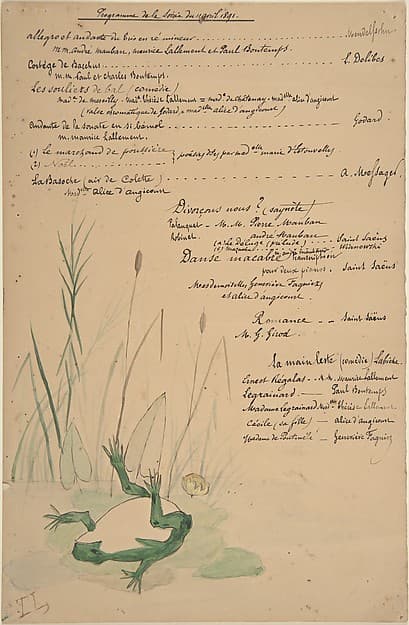 Programme de la Soirée du 11 avril 1891.
allegro et andante du trio en ré mineur Mendelssohn
m.m. andré Mauban, maurice Lallement et Paul Bontemps.
Cortège de Bacchus L. Delibes
m.m. Paul et charles Bontemps.
Les souliers de bal (comédie)
mad. de mad. Thérèse Lallement = mad. de Châtenay = madelle alice d'angicourt
(valse de Godard = madelle alice d'angicourt)
andante de la sonate en si bémol Godard
m. maurice Lallement.
(1) Le marchand de poussière
(2) Noël poésies dites par madelle marie d'
La Basoche (air de Colette) A. Messager
madelle alice d'angicourt
Divorçons nous? (saynète)
M. M. Pierre Mauban
andré Mauban
(a) Le Déluge (prélude) Saint Saëns
Danse macabre transcription
pour deux pianos. Saint Saëns
Mesdemoiselles Geneviève Fagniez
et alice d'angicourt.
Romance -- Saint Saëns
M. G. Girod
La main leste (comédie) Labiche
Ernest Régalas - M.M. Maurice Lallement
Legrainard — Paul Bontemps
Madame Legrainard Melle Thérèse Lallement
Cécile (sa fille) — alice d'angicourt
Madame de — Geneviève Fagniez